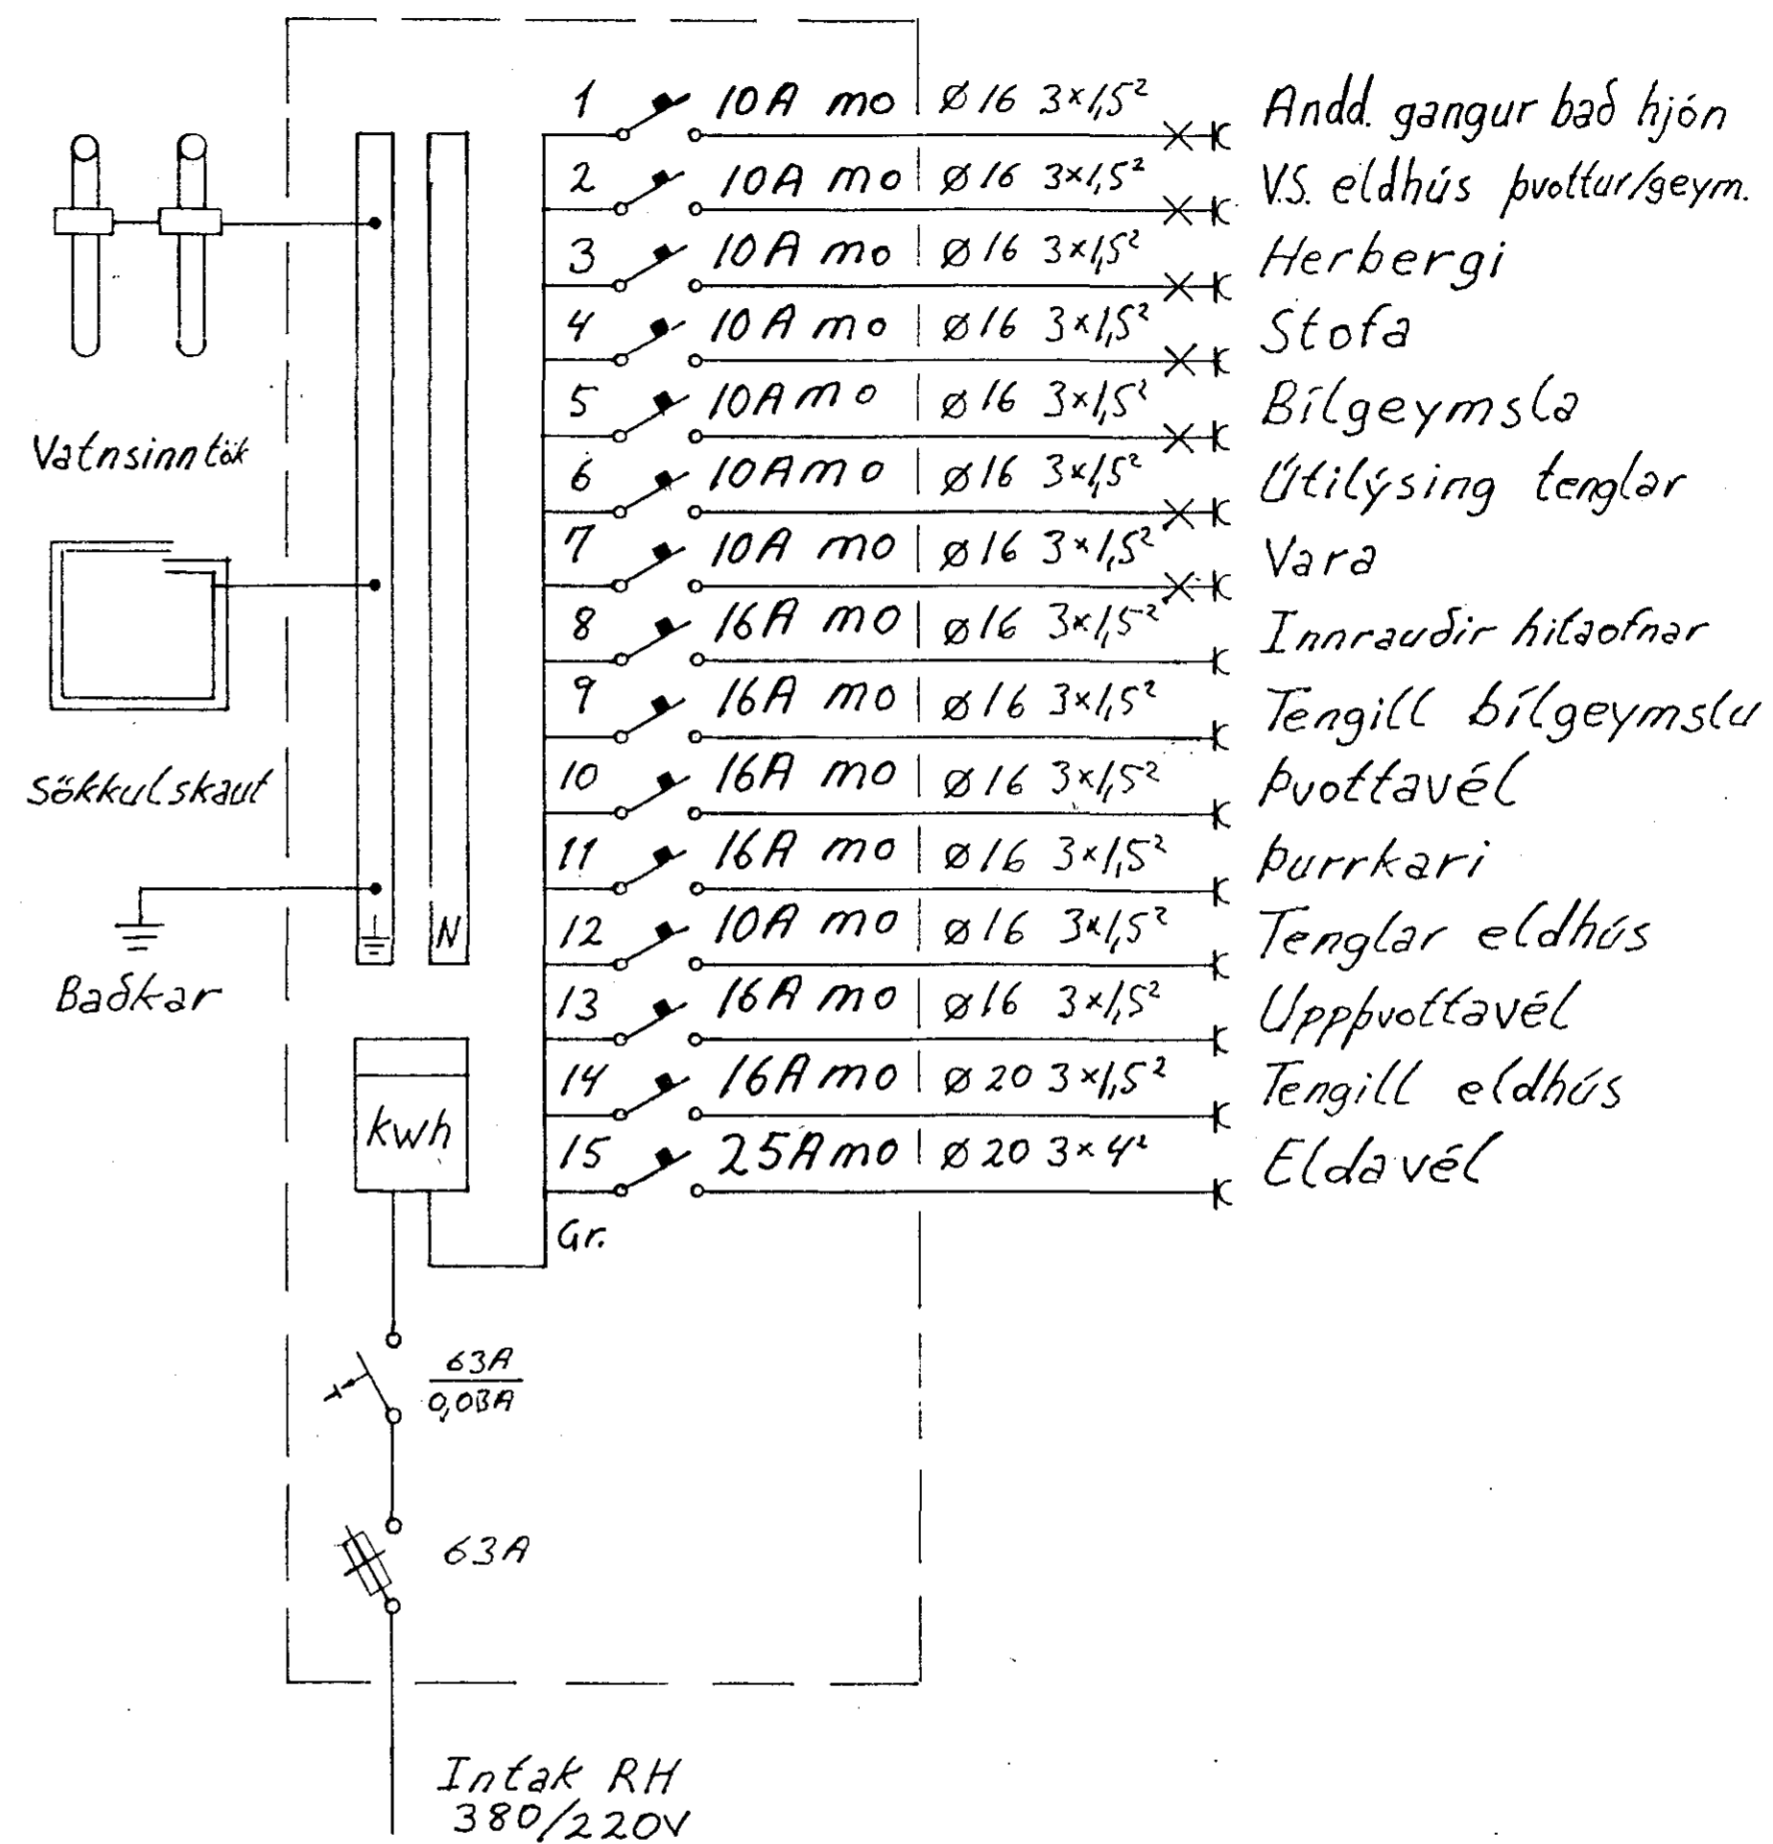 1 10A mo Ø16 3×1,5² Andd. gangur bað hjón
2 10A mo Ø16 3×1,5² V.S. eldhús þvottur/geym.
3 10A mo Ø16 3×1,5² Herbergi
4 10A mo Ø16 3×1,5² Stofa
5 10A mo Ø16 3×1,5² Bílgeymsla
6 10A mo Ø16 3×1,5² Útilýsing tenglar
7 10A mo Ø16 3×1,5² Vara
8 16A mo Ø16 3×1,5² Innrauðir hitaofnar
9 16A mo Ø16 3×1,5² Tengill bílgeymslu
10 16A mo Ø16 3×1,5² Þvottavél
11 16A mo Ø16 3×1,5² Þurrkari
12 10A mo Ø16 3×1,5² Tenglar eldhús
13 16A mo Ø16 3×1,5² Uppþvottavél
14 16A mo Ø20 3×1,5² Tengill eldhús
15 25A mo Ø20 3×4² Eldavél
Gr.
Vatnsinntök
Sökkulskaut
Baðkar
N
kwh
63A
0,03A
63A
Intak RH
380/220V